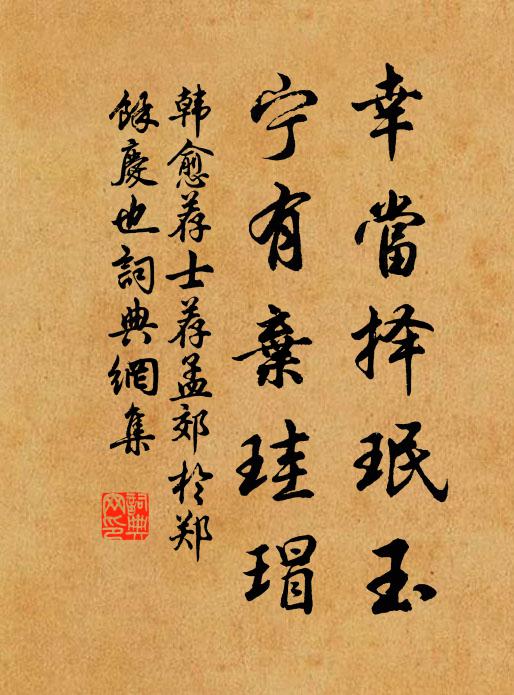 幸當择珉玉
宁有棄珪瑁
韩愈荐士荐孟郊於郑
餘慶也詞典網集
詞典網印